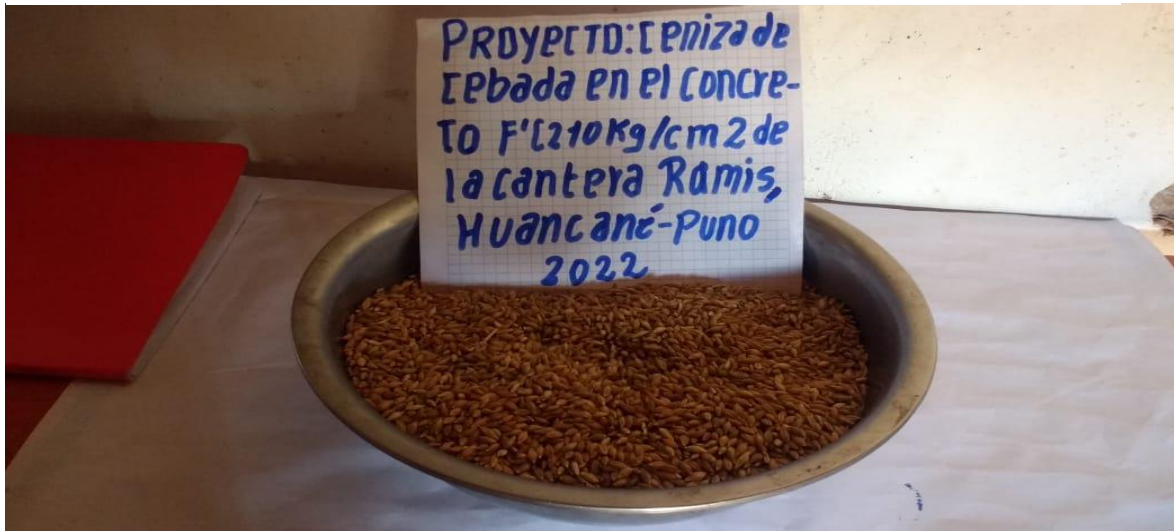 PROYECTO: Ceniza de
Cebada en el Concre-
to F'C210Kg/cm2 de
la cantera Ramis,
Huancané-Puno
2022